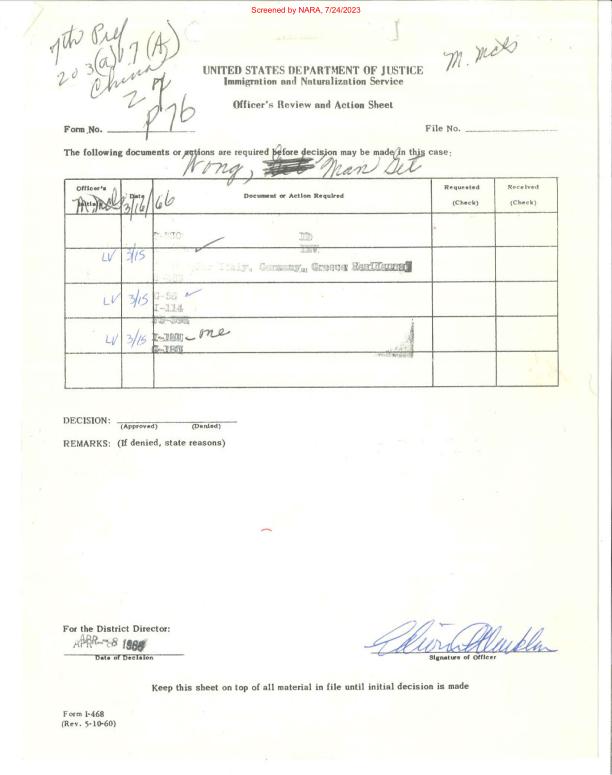 Screened by NARA, 7/24/2023
7th Pref
203(a)(7)(A)
China
2 of
P76
UNITED STATES DEPARTMENT OF JUSTICE
Immigration and Naturalization Service
Officer's Review and Action Sheet
Form No.
File No.
The following documents or actions are required before decision may be made in this case:
Wong, Man Get
Officer's Initials Date Document or Action Required Requested (Check) Received (Check)
3/16/66
LV 3/15
Italy, Germany, Greece
LV 3/15 G-56
I-114
LV 3/15 one
DECISION:
(Approved) (Denied)
REMARKS: (If denied, state reasons)
For the District Director:
APR -8 1966
Date of Decision
Signature of Officer
Keep this sheet on top of all material in file until initial decision is made
Form I-468
(Rev. 5-10-60)